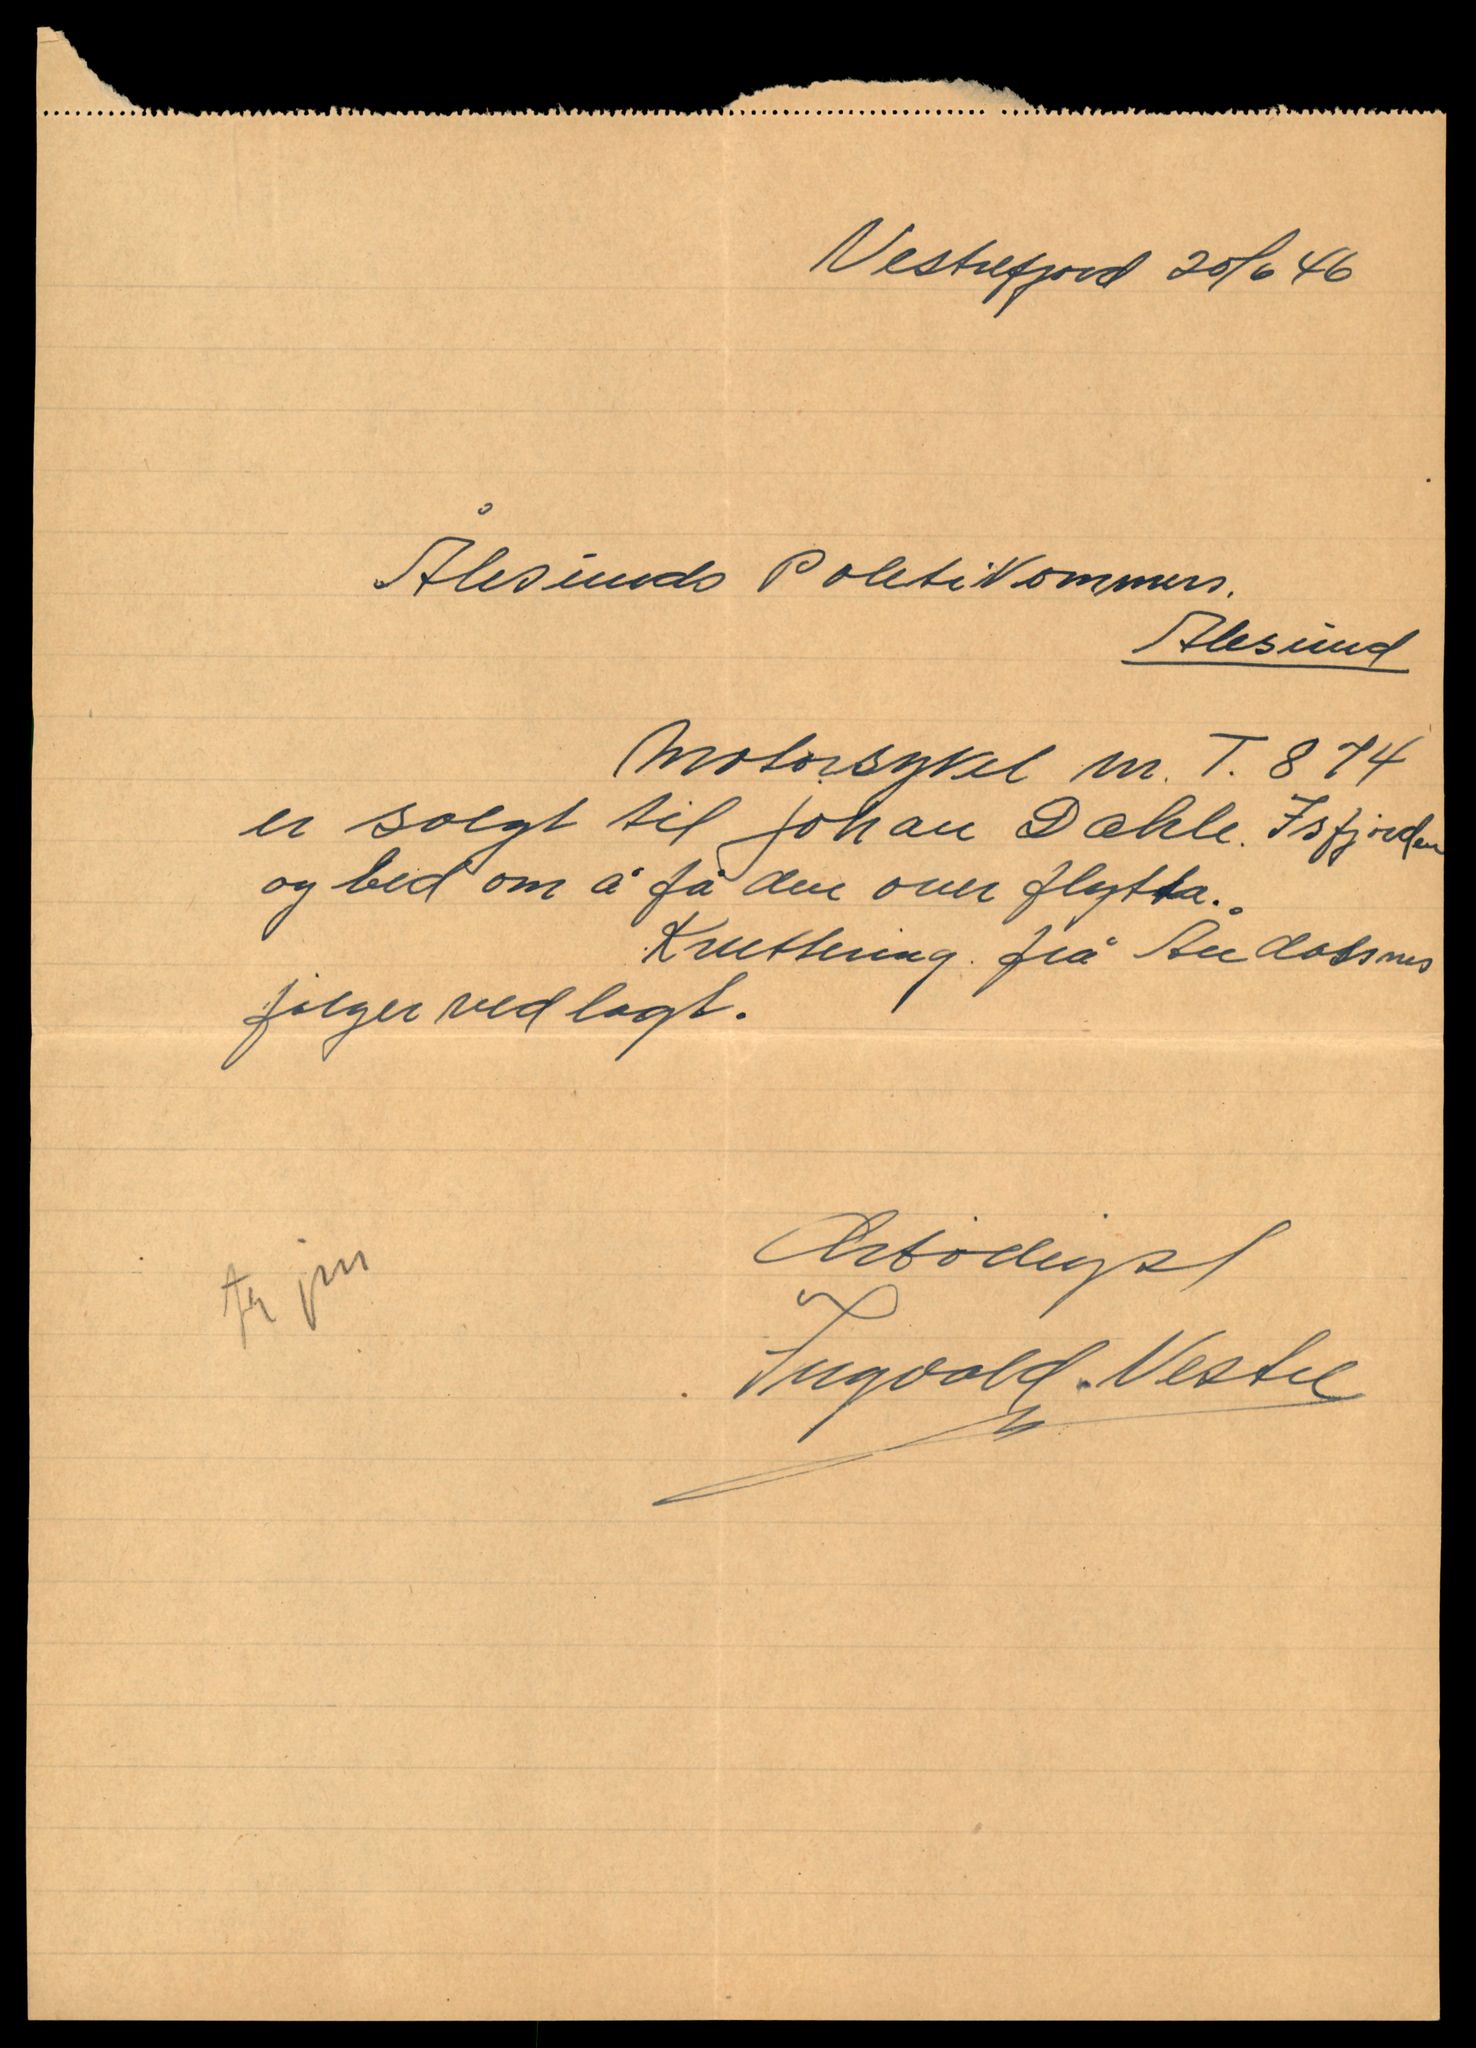 Vestrefjord 20/6 46
Ålesunds Politikammers.
Ålesund
Motorsykel nr. T. 874
er solgt til Johan Dahle. Isfjorden
og bed om å få den over flytta.
Kvittering frå Åndalsnes
følger ved lagt.
Ærbødigst
Ingvald Vestre